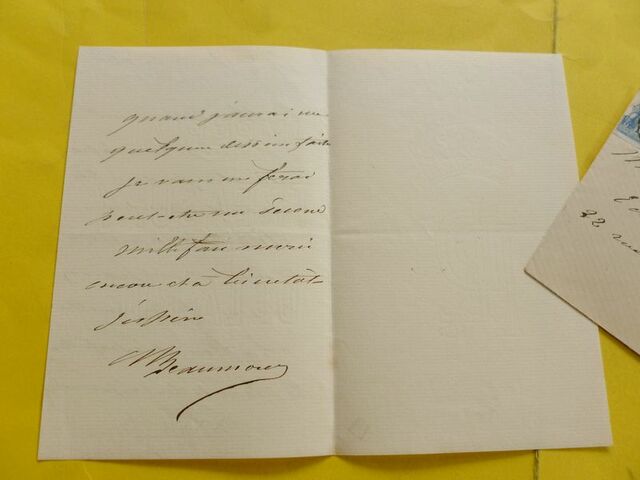 quand j'aurai vu
quelques dessins faits
je vous en ferai
peut-être un second
mille fois merci
encore et à bientôt
j'espère
Beaumont
22 rue